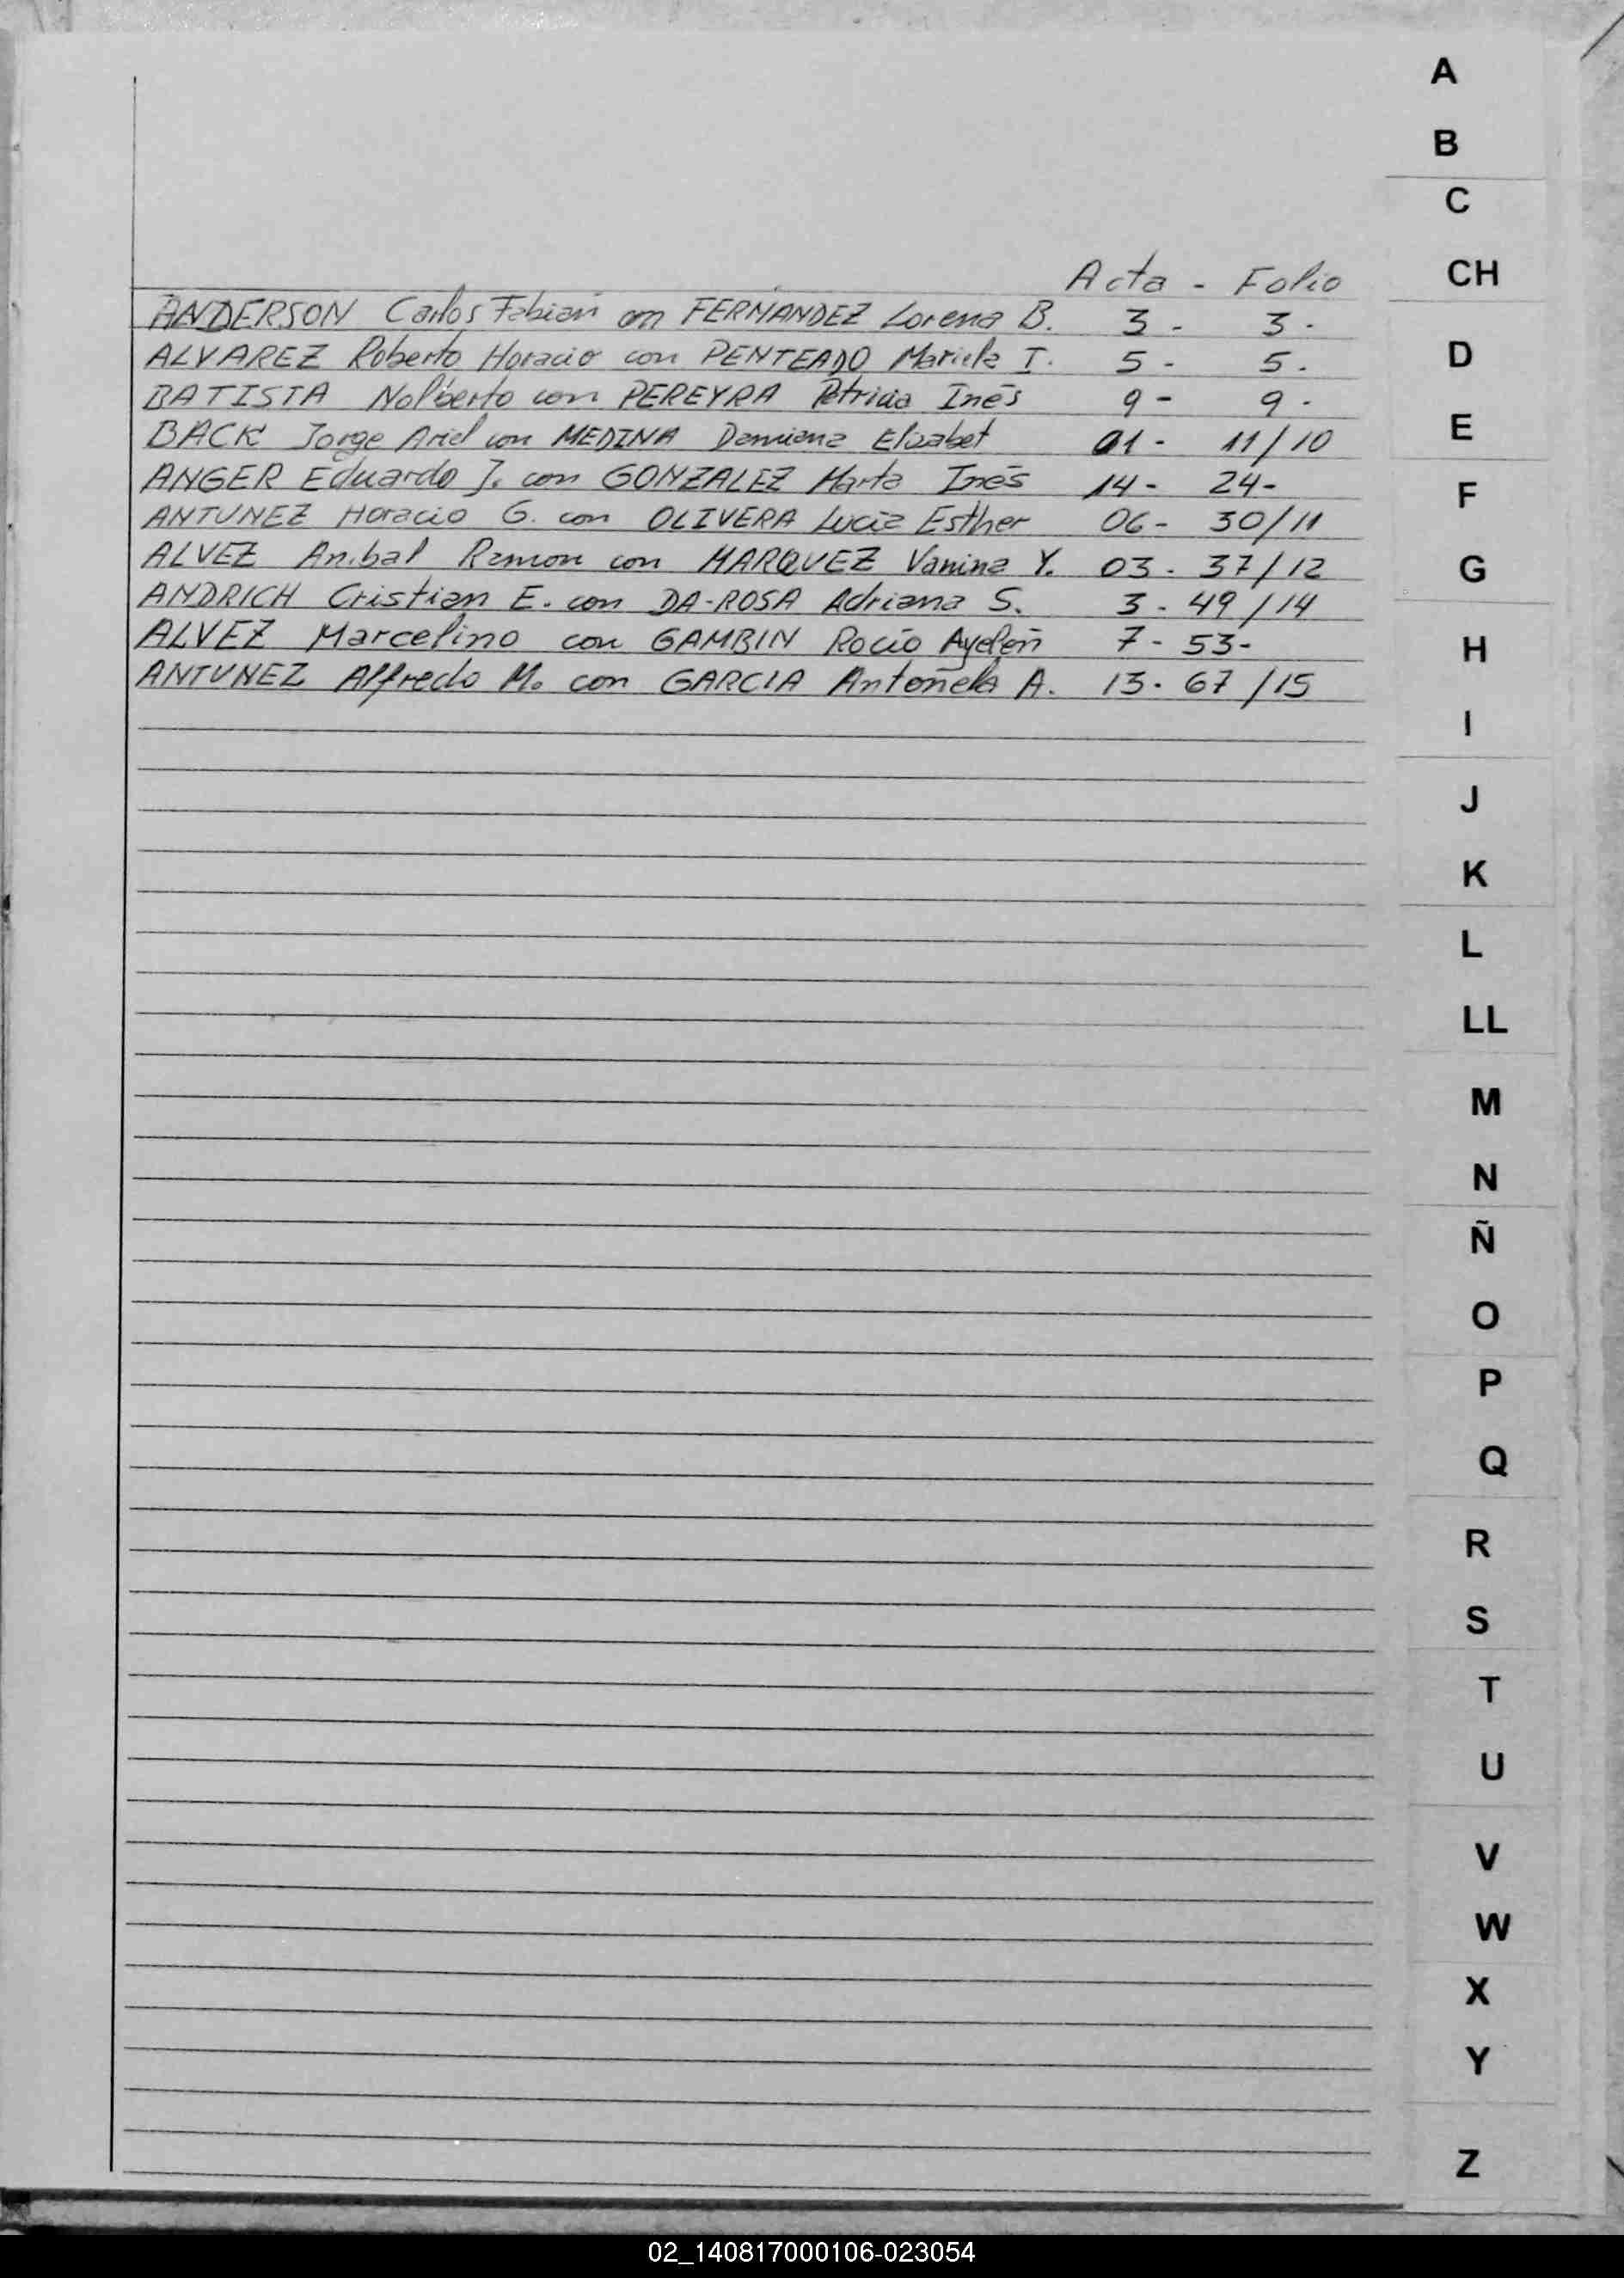 Acta - Folio
ANDERSON Carlos Fabian con FERNANDEZ Lorena B. 3 - 3.
ALVAREZ Roberto Horacio con PENTEADO Mariela I. 5 - 5.
BATISTA Nolberto con PEREYRA Patricia Inés 9 - 9.
BACK Jorge Ariel con MEDINA Damiana Elizabet 01 - 11/10
ANGER Eduardo J. con GONZALEZ Marta Inés 14 - 24-
ANTUNEZ Horacio G. con OLIVERA Lucia Esther 06 - 30/11
ALVEZ Anibal Ramon con MARQUEZ Vanina Y. 03 - 37/12
ANDRICH Cristian E. con DA-ROSA Adriana S. 3 - 49/14
ALVEZ Marcelino con GAMBIN Rocío Ayelén 7 - 53-
ANTUNEZ Alfredo M. con GARCIA Antonela A. 13 - 67/15
A
B
C
CH
D
E
F
G
H
I
J
K
L
LL
M
N
Ñ
O
P
Q
R
S
T
U
V
W
X
Y
Z
02_140817000106-023054